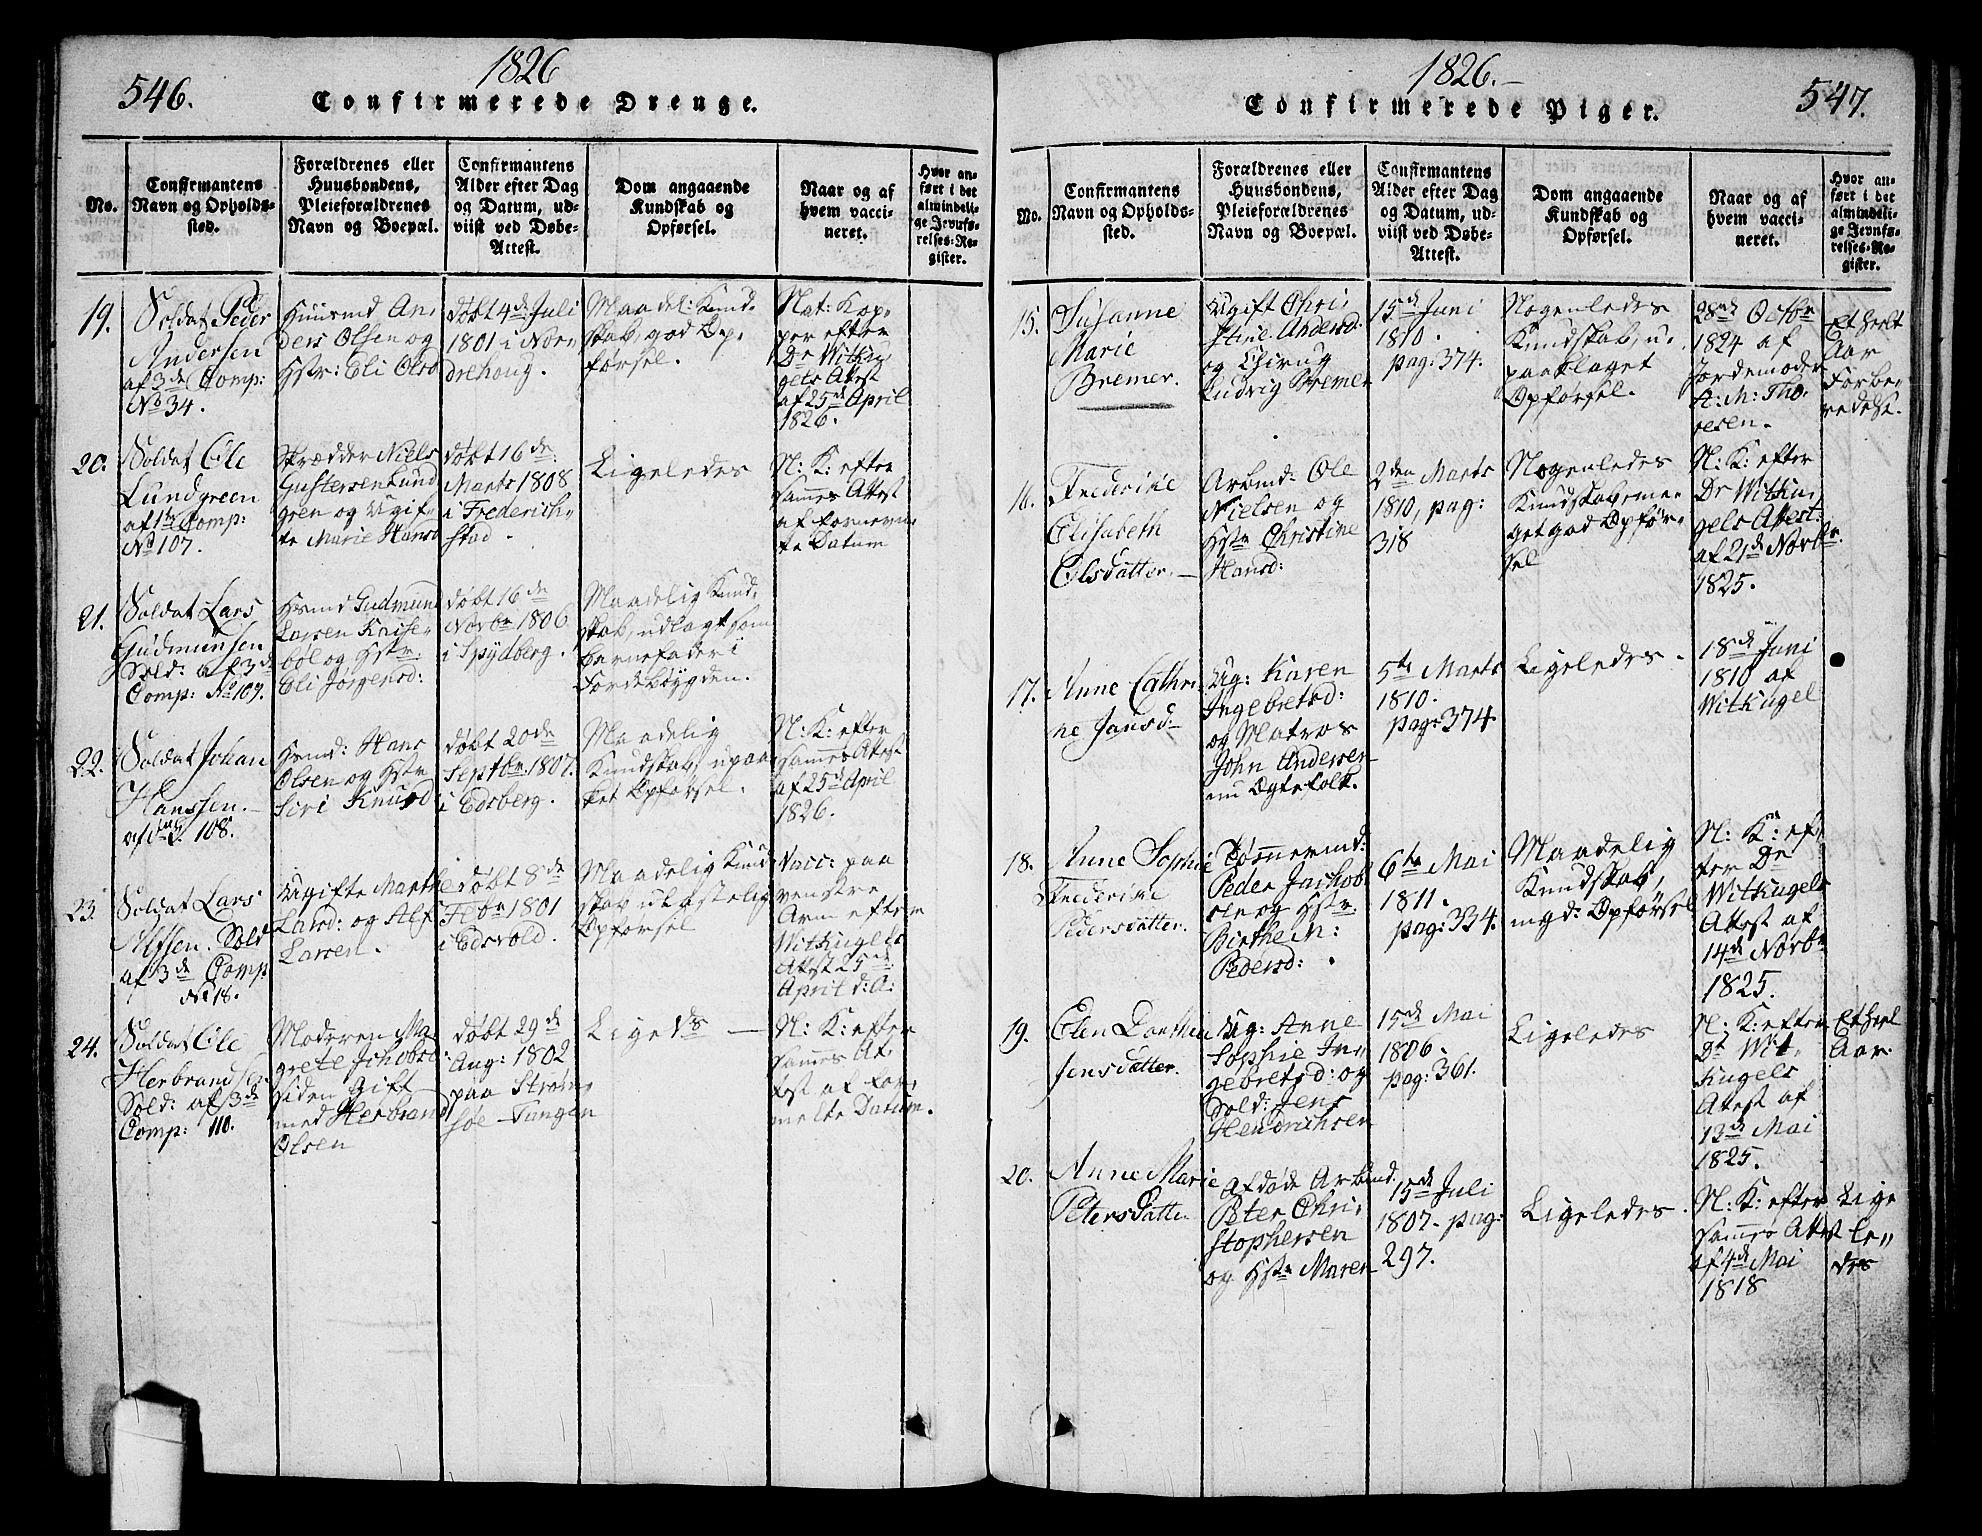 546.
1826
Confirmerede Drenge.
No.
Confirmantens
Navn og Opholds-
sted.
Forældrenes eller
Huusbondens,
Pleieforældrenes
Navn og Boepæl.
Confirmantens
Alder efter Dag
og Datum, ud-
viist ved Døbe-
Attest.
Dom angaaende
Kundskab og
Opførsel.
Naar og af
hvem vacci-
neret.
Hvor an-
ført i det
almindeli-
ge Jevnfø-
relses-Re-
gister.
19.
Soldat Peder
Andersen
af 3de Comp:
No 34.
Huusmd An,
ders Olsen og
Hstr: Eli Olsd
døbt 4de Juli
1801 i Nor,
drehoug.
Maadel: Kund,
skab, god Op,
førsel.
Nat: Kop,
per efter
Dr Witku,
gels Attest
af 25de April
1826.
20.
Soldat Ole
Lundgreen
af 1te Comp:
No 107.
Skrædder Niels
Gustersen Lund
gren og Ugif,
te Marie Hansd
døbt 16de
Marts 1808
i Frederich,
stad.
Ligeledes
N: K: efter
sammes Attest
af fornevn,
te Datum
21.
Soldat Lars
Gudmunsen
Sold: af 3de
Comp: No 109.
Hsmd Gudmund
Larsen Knise,
bøl og Hstr.
Eli Jørgensd:
døbt 16de
Novbr 1806
i Spydberg.
Maadelig Kund,
skab, udlagt som
barnefader i
Fordebøygden.
22.
Soldat Johan
Hanssen.
af 108.
Hsmd: Hans
Olsen og Hstr
Siri Knusd
døbt 20de
Septbr 1807.
i Edsberg.
Maadelig
Kundskab, upaa
ket Opførsel.
N: K: efter
sammes Attest
af 25de April
1826.
23.
Soldat Lars
Alfsen. Sold
af 3de Comp
No 18.
Ugifte Marthe
Larsd: og Alf
Larsen.
døbt 8de
Febr 1801
i Edsvold.
Maadelig Kund
skab ulastelig
Opførsel
Vacc: paa
venstre
Arm efter
Witkugels
Attest 25de
April d: A:
24.
Soldat Ole
Herbrandsen
Sold: af 3de
Comp: 110.
Moderen Ma,
grete Jchobsd
siden gift
med Herbrand
Olsen
døbt 29de
Aug: 1802
paa Strøm,
søe Tangen
Lige ds —
N: K: efter
sammes At,
test af for,
melte Datum.
1826.
547.
Confirmerede Piger.
No.
Confirmantens
Navn og Opholds-
sted.
Forældrenes eller
Huusbondens,
Pleieforældrenes
Navn og Boepæl.
Confirmantens
Alder efter Dag
og Datum, ud-
viist ved Døbe-
Attest.
Dom angaaende
Kundskab og
Opførsel.
Naar og af
hvem vacci-
neret.
Hvor an-
ført i det
almindeli-
ge Jevnfø-
relses-Re-
gister.
15.
Susanne
Marie
Bremer.
Ugift Chri,
stine Andersd:
og Chirug
Ludvig Bremer
15de Juni
1810.
pag: 374.
Nogenledes
Kundskab, u,
paaklaget
Opførsel.
28nd Octbr
1824 af
Jordemoder
A: M: Tho,
resen.
Et heelt
Aar
Forbe,
redelse.
16.
Frederike
Elisabeth
Olsdatter.
Arbmd: Ole
Nielsen og
Hstr Christine
Hansd:
2den Marts
1810, pag:
318
Nogenledes
Kundskab, me,
get god Opfør,
sel
N: K: efter
Dr Witku,
gels Attest:
af 21de Novbr.
1825.
17.
Anne Cathri,
ne Jansd
Ug: Karen
Ingebretsd:
og Matros
John Andersen
nu Egtefolk.
5te Marts
1810.
pag: 374.
Ligeledes.
18de Juni
1810 af
Witkugel
18.
Anne Sophie
Frederike
Pedersdatter.
Tømmermd:
Peder Jachob
sen og Hstr.
Birthe M:
Pedersd:
6te Mai
1811.
pag: 334.
Maadelig
Kundskab,
mgd: Opførsel
N: K: ef,
ter Dr
Witkugels
Attest af
14de Novbr
1825.
19.
Elen Dorthea
Jensdatter.
Ug: Anne
Sophie In,
gebretsd: og
Sold: Jens
Hendrichsen
15de Mai
1806.
pag: 361.
Ligeledes
N: K: efter
Dr Wit,
kugels
Attest af
13de Mai
1825.
Et heel
Aar.
20.
Anne Marie
Petersdatter
Afdøde Arbmd.
Peter Chri,
stophersen
og Hstr Maren
15de Juli
1807. pag:
297.
Ligeledes.
N: K: efter
sammes Attest
af 4de Mai
1818
Lige
le,,
des